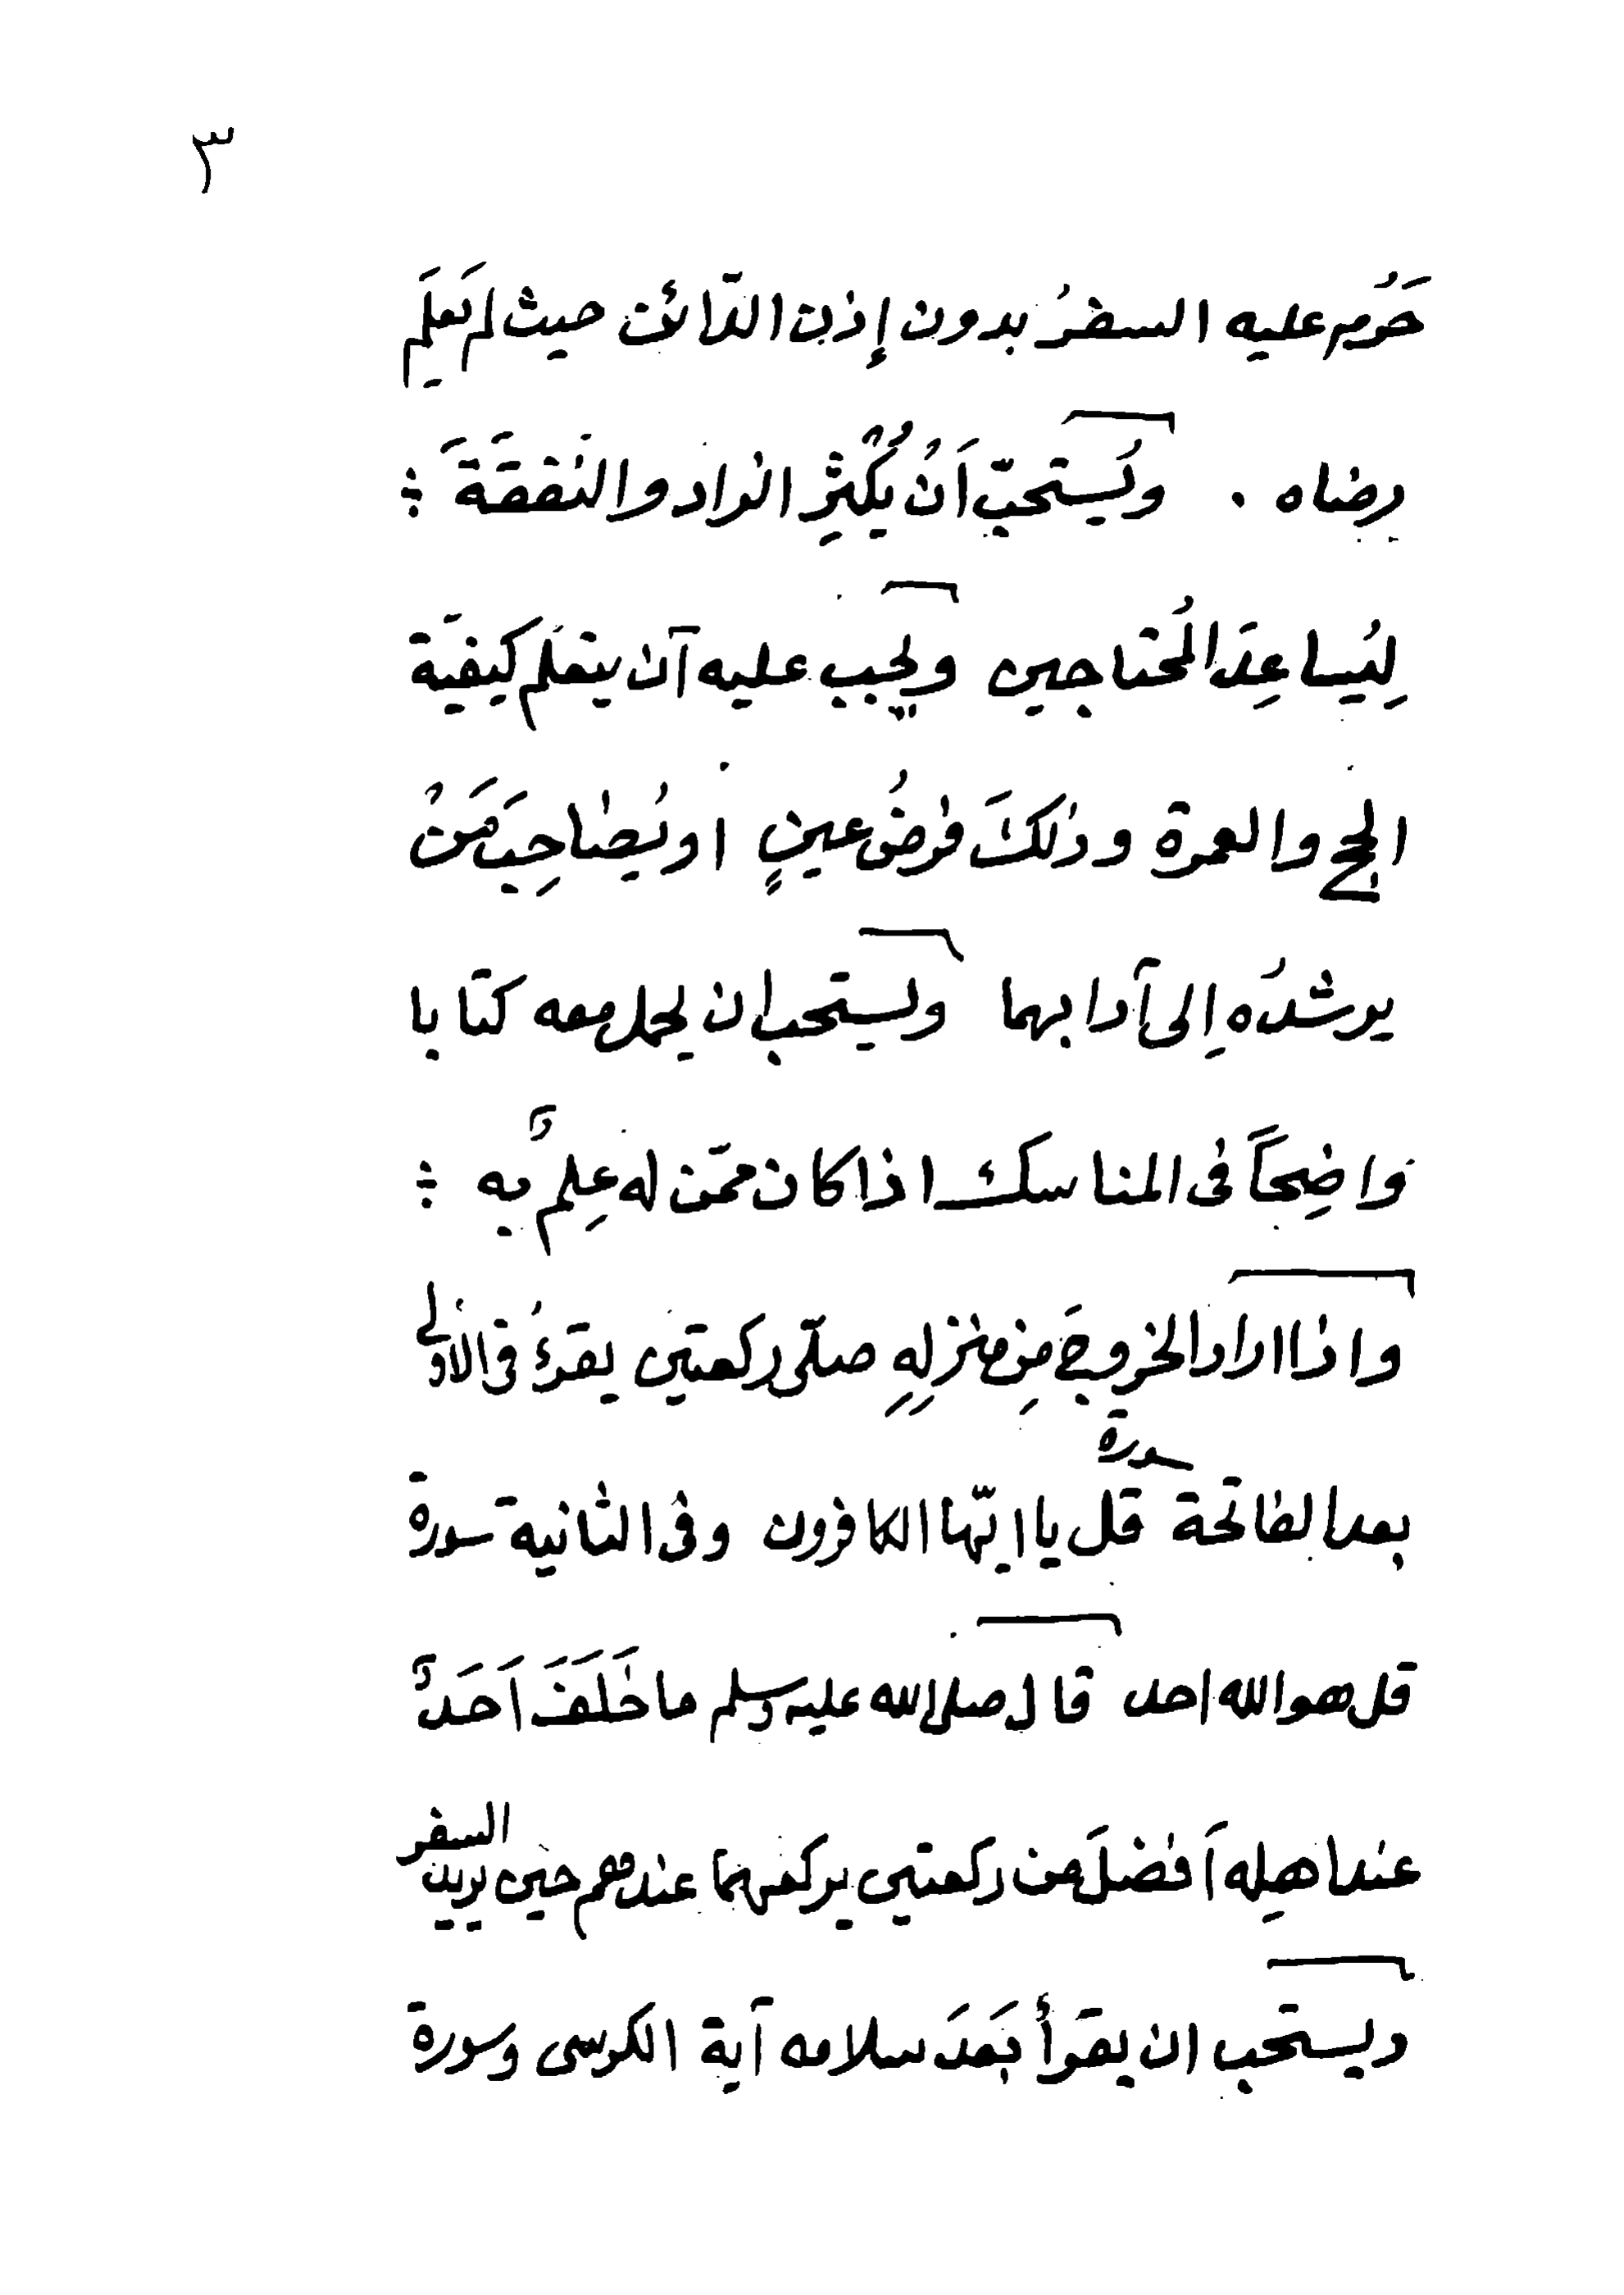 ٣
حَرُم عليه السفرُ بدون إذن الدّائن حيث لم يَعلَم
رضاه . ويُستحبّ اَنْ يُكْثِرِ الزاد والنفقَةَ :
لِيُساعِدَ المُحتاجين ويجب عليه آن يتعلم كيفيّة
الحج والعمرة وذلكَ فرضُ عينٍ او يُصاحِبَ مَنْ
يرشدُه إلى آدابهما ويستحب ان يحمل معه كتابا
واضِحاً فى المناسك اذا كان ممّن له عِلمٌ به :
واذا اراد الخروجَ مِن منزلِهِ صلّى ركعتين يقرءُ فى الأولى
بعد الفاتحة سورة قل يا ايّها الكافرون وفى الثانية سورة
قل هو الله احد قال صلى الله عليه وسلم ما خَلَفَ اَحَدٌ
عند اهلِه اَفضلَ من ركعتين يركعهما عندهم حين يريد السفر
ويستحب ان يقرأ بَعدَ سلامه آية الكرسى وسورة